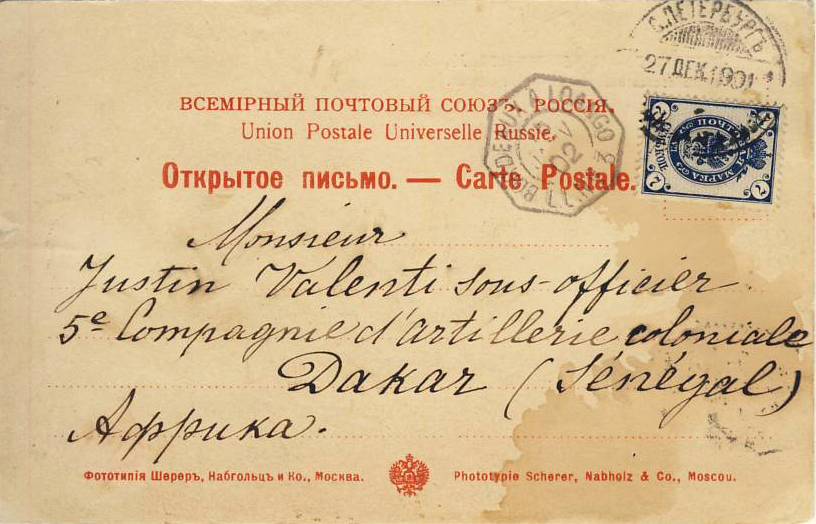 С.ПЕТЕРБУРГЪ
27 ДЕК.1901
ВСЕМІРНЫЙ ПОЧТОВЫЙ СОЮЗЪ, РОССІЯ.
Union Postale Universelle, Russie.
LOANGO
02
Открытое письмо. — Carte Postale.
МАРКА
2
2
Monsieur
Justin Valenti sous-officier
5e Compagnie d'artillerie coloniale
Dakar (Sénégal)
Африка.
Фототипія Шереръ, Набгольцъ и Ко., Москва.
Phototypie Scherer, Nabholz & Co., Moscou.